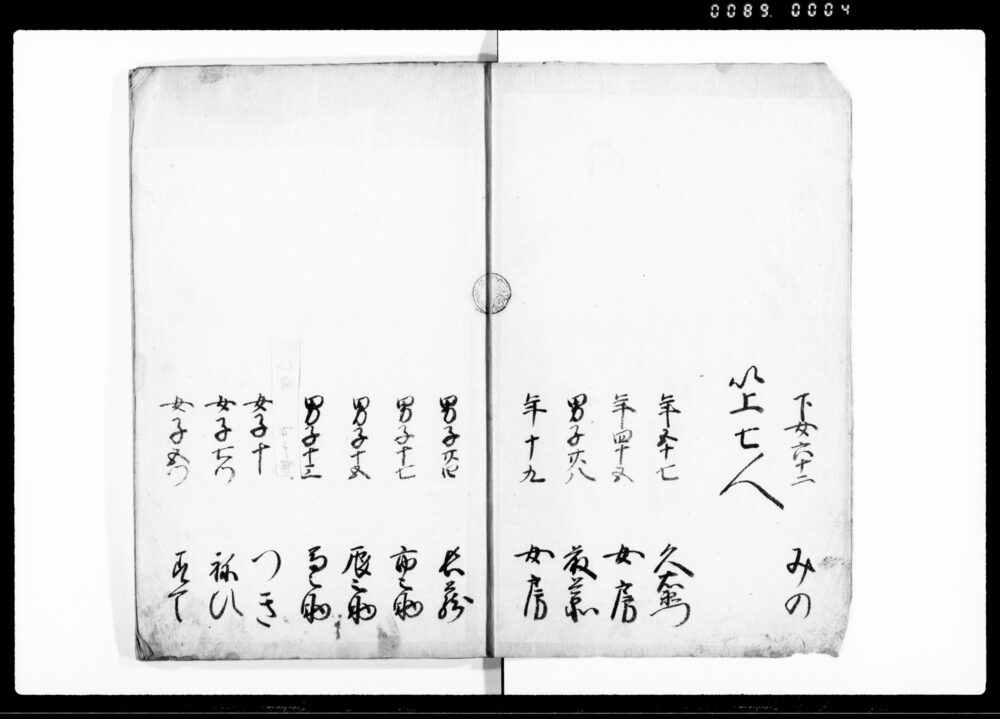 0089. 0004
下女六十二 みの
以上七人
年五十七 久右衛門
年四十五 女房
男子廿八
年十九 女房
男子廿四 長蔵
男子十七 市之助
男子十五 辰之助
男子十三 之助
女子十 つき
女子七つ
女子五つ